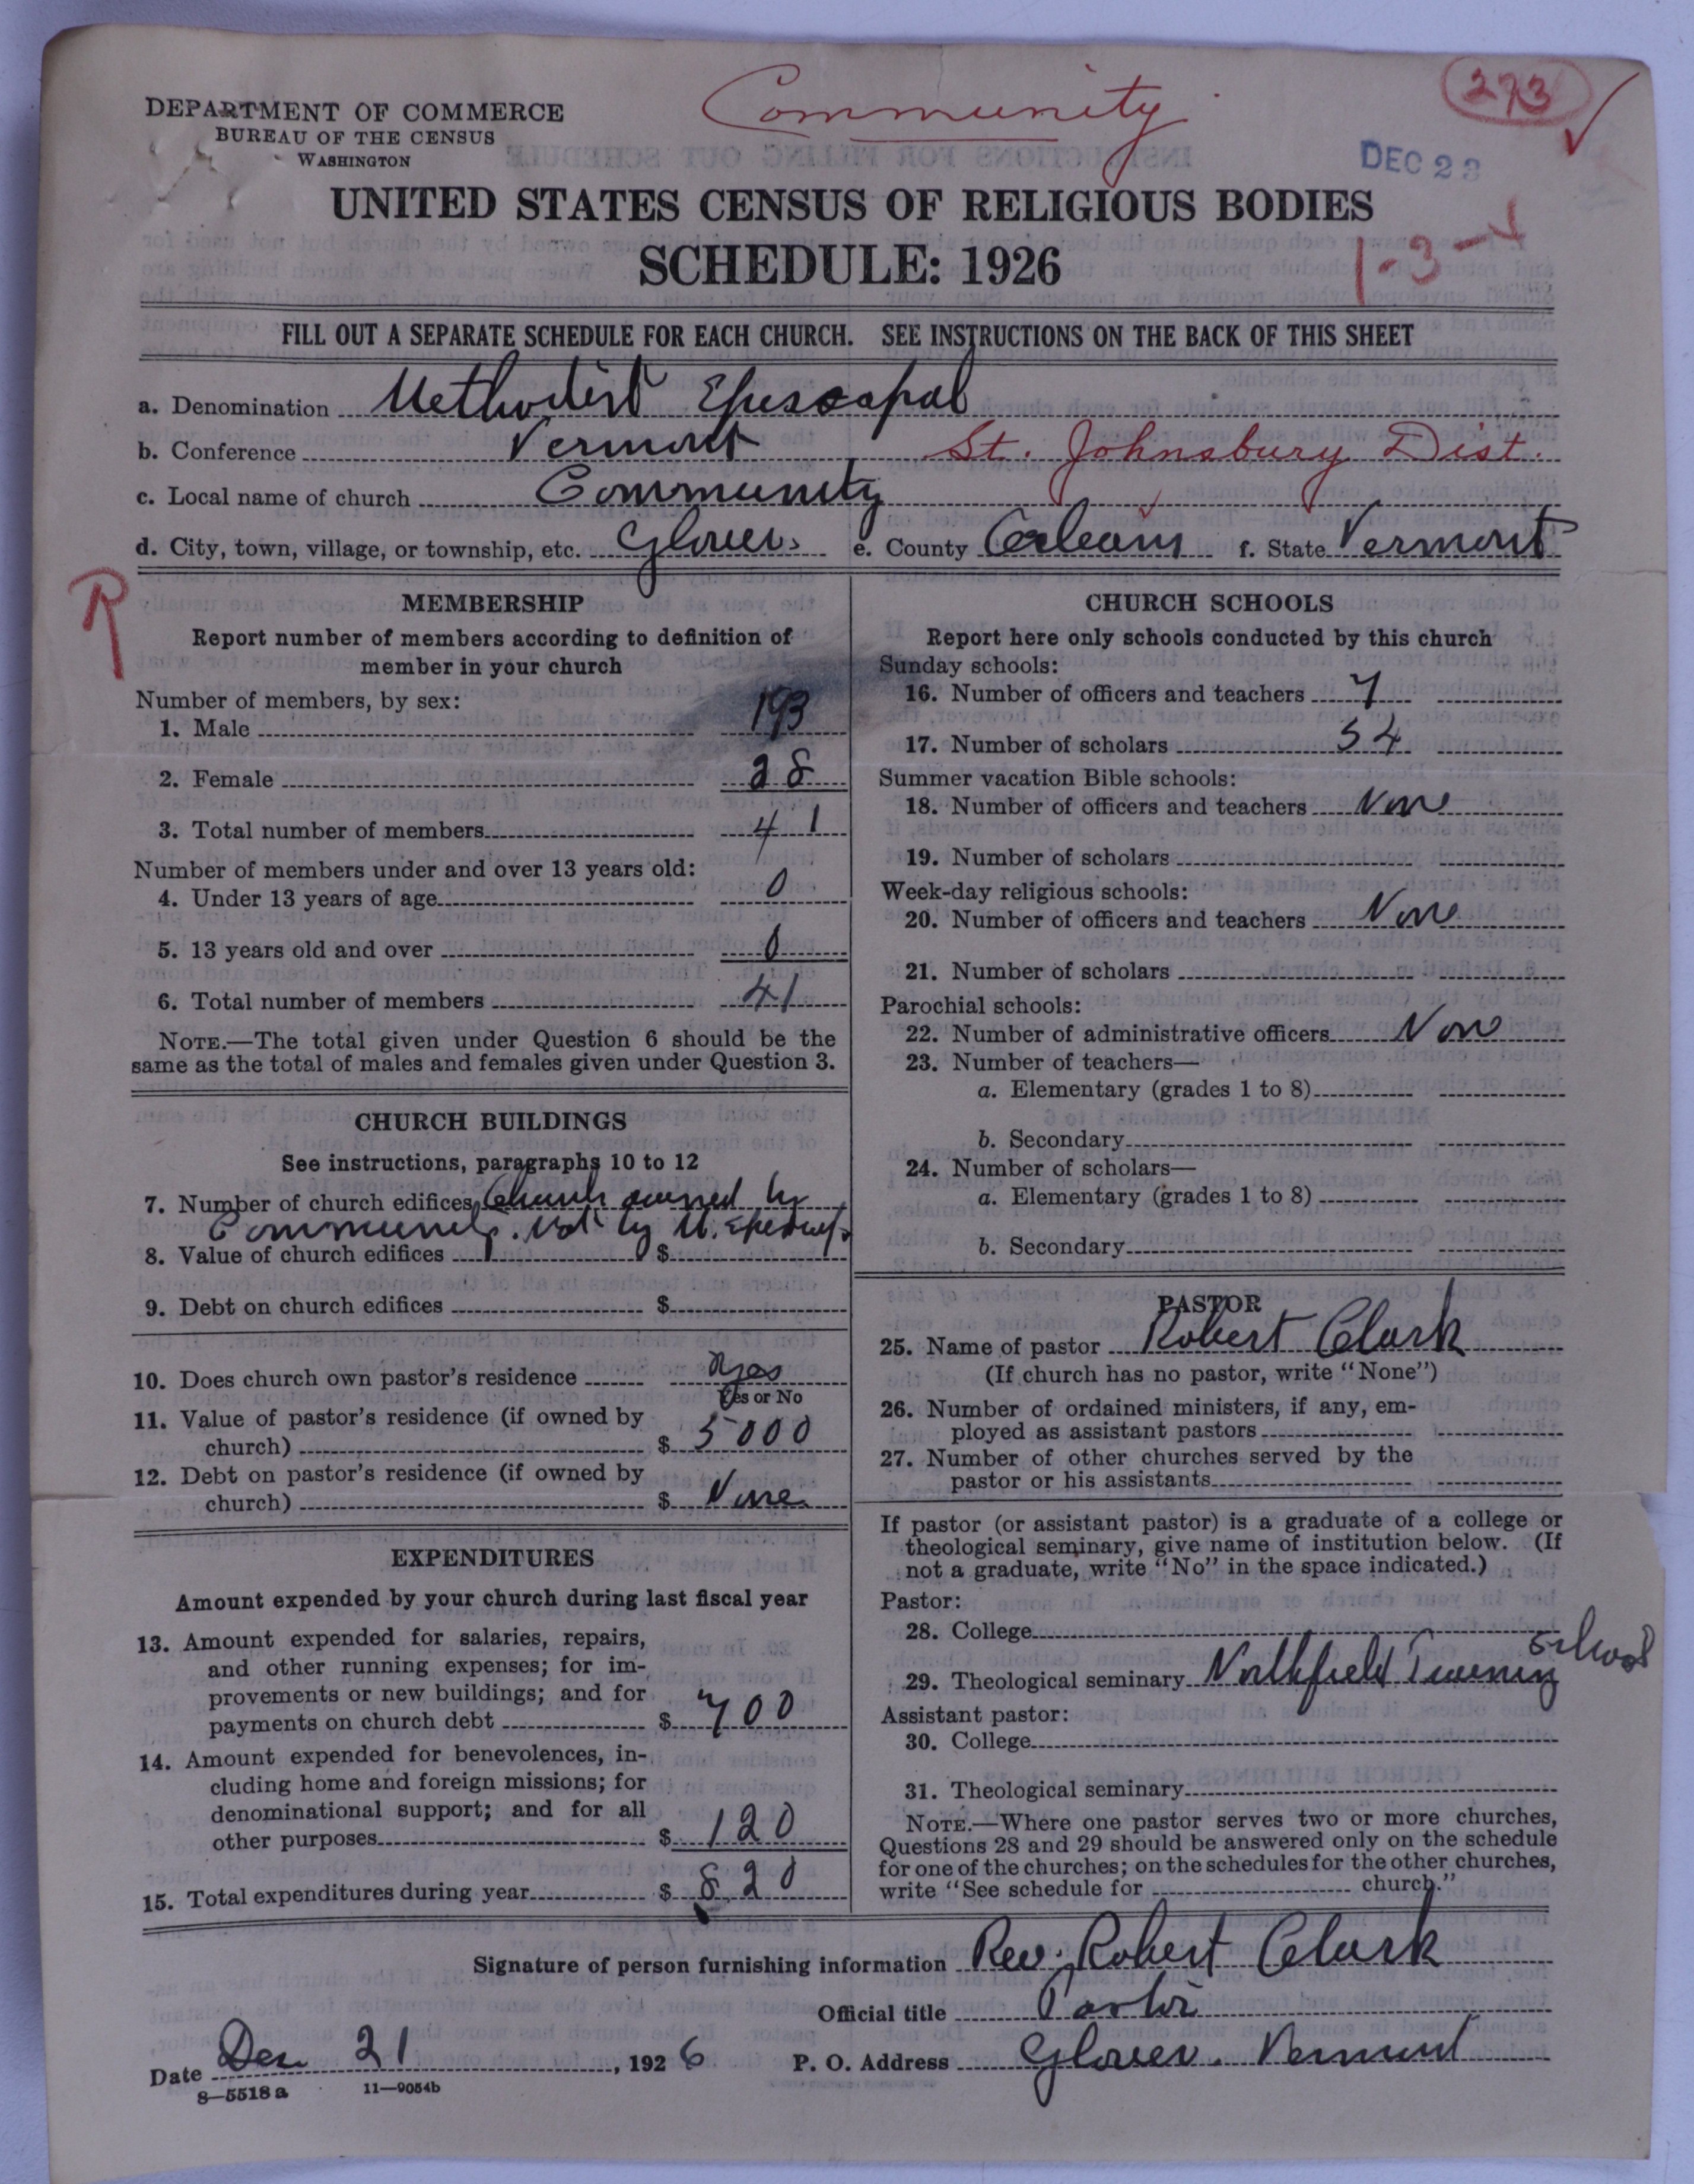 Community
273
DEPARTMENT OF COMMERCE
BUREAU OF THE CENSUS
WASHINGTON
DEC 23
UNITED STATES CENSUS OF RELIGIOUS BODIES
SCHEDULE: 1926
1-3-
FILL OUT A SEPARATE SCHEDULE FOR EACH CHURCH. SEE INSTRUCTIONS ON THE BACK OF THIS SHEET
a. Denomination Methodist Episcopal
b. Conference Vermont St. Johnsbury Dist.
c. Local name of church Community
d. City, town, village, or township, etc. Glover e. County Orleans f. State Vermont
R
MEMBERSHIP
Report number of members according to definition of
member in your church
Number of members, by sex:
1. Male
2. Female 28
3. Total number of members 41
Number of members under and over 13 years old:
4. Under 13 years of age 0
5. 13 years old and over 0
6. Total number of members 41
NOTE.—The total given under Question 6 should be the
same as the total of males and females given under Question 3.
CHURCH BUILDINGS
See instructions, paragraphs 10 to 12
7. Number of church edifices Church owned by
Community. Not by M. Episcopal
8. Value of church edifices $
9. Debt on church edifices $
10. Does church own pastor's residence Yes
Yes or No
11. Value of pastor's residence (if owned by
church) $ 5000
12. Debt on pastor's residence (if owned by
church) $ None
EXPENDITURES
Amount expended by your church during last fiscal year
13. Amount expended for salaries, repairs,
and other running expenses; for im-
provements or new buildings; and for
payments on church debt $ 700
14. Amount expended for benevolences, in-
cluding home and foreign missions; for
denominational support; and for all
other purposes $ 120
15. Total expenditures during year $ 820
CHURCH SCHOOLS
Report here only schools conducted by this church
Sunday schools:
16. Number of officers and teachers 7
17. Number of scholars 54
Summer vacation Bible schools:
18. Number of officers and teachers None
19. Number of scholars
Week-day religious schools:
20. Number of officers and teachers None
21. Number of scholars
Parochial schools:
22. Number of administrative officers None
23. Number of teachers—
a. Elementary (grades 1 to 8)
b. Secondary
24. Number of scholars—
a. Elementary (grades 1 to 8)
b. Secondary
PASTOR
25. Name of pastor Robert Clark
(If church has no pastor, write "None")
26. Number of ordained ministers, if any, em-
ployed as assistant pastors
27. Number of other churches served by the
pastor or his assistants
If pastor (or assistant pastor) is a graduate of a college or
theological seminary, give name of institution below. (If
not a graduate, write "No" in the space indicated.)
Pastor:
28. College
29. Theological seminary Northfield Training School
Assistant pastor:
30. College
31. Theological seminary
NOTE.—Where one pastor serves two or more churches,
Questions 28 and 29 should be answered only on the schedule
for one of the churches; on the schedules for the other churches,
write "See schedule for church."
Signature of person furnishing information Rev. Robert Clark
Official title Pastor
Date Dec 21, 1926 P. O. Address Glover. Vermont
8—5518 a 11—9054b